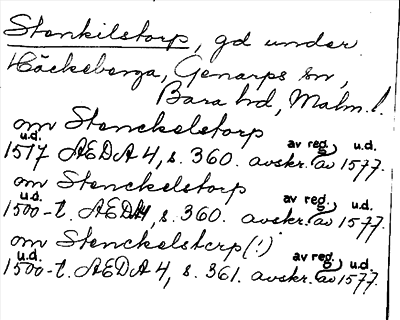 Stenkilstorp, gd under
Häckeberga, Genarps sn,
Bara hd, Malm. l.
om Stenckelstorp
u.d. av reg. u.d.
1517 AEDA 4, s. 360. avskr. av 1577.
om Stenckelstorp
u.d. av reg. u.d.
1500-t. AEDA 4, s. 360. avskr. av 1577.
om Stenckelstcrp (!)
u.d. av reg. u.d.
1500-t. AEDA 4, s. 361. avskr. av 1577.